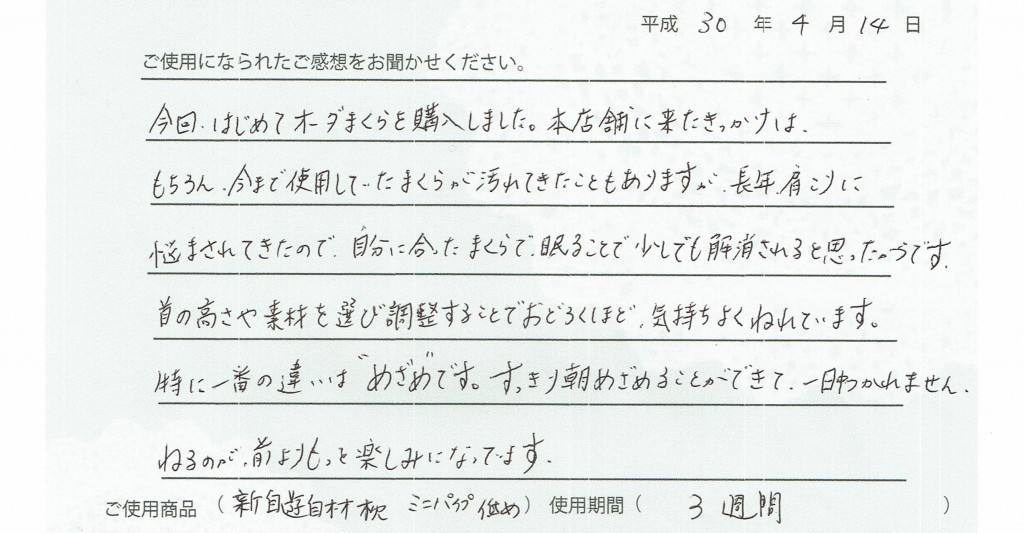 平成 30 年 4 月 14 日
ご使用になられたご感想をお聞かせください。
今回、はじめてオーダまくらを購入しました。本店舗に来たきっかけは、
もちろん、今まで使用していたまくらが汚れてきたこともありますが、長年、肩こりに
悩まされてきたので、自分に合ったまくらで、眠ることで少しでも解消されると思ったからです。
首の高さや素材を選び調整することでおどろくほど、気持ちよくねれています。
特に一番の違いは"めざめ"です。すっきり朝めざめることができて、一日中つかれません。
ねるのが、前よりもっと楽しみになってます。
ご使用商品 ( 新自遊自材枕 ミニパイプ 低め ) 使用期間 ( 3 週間 )